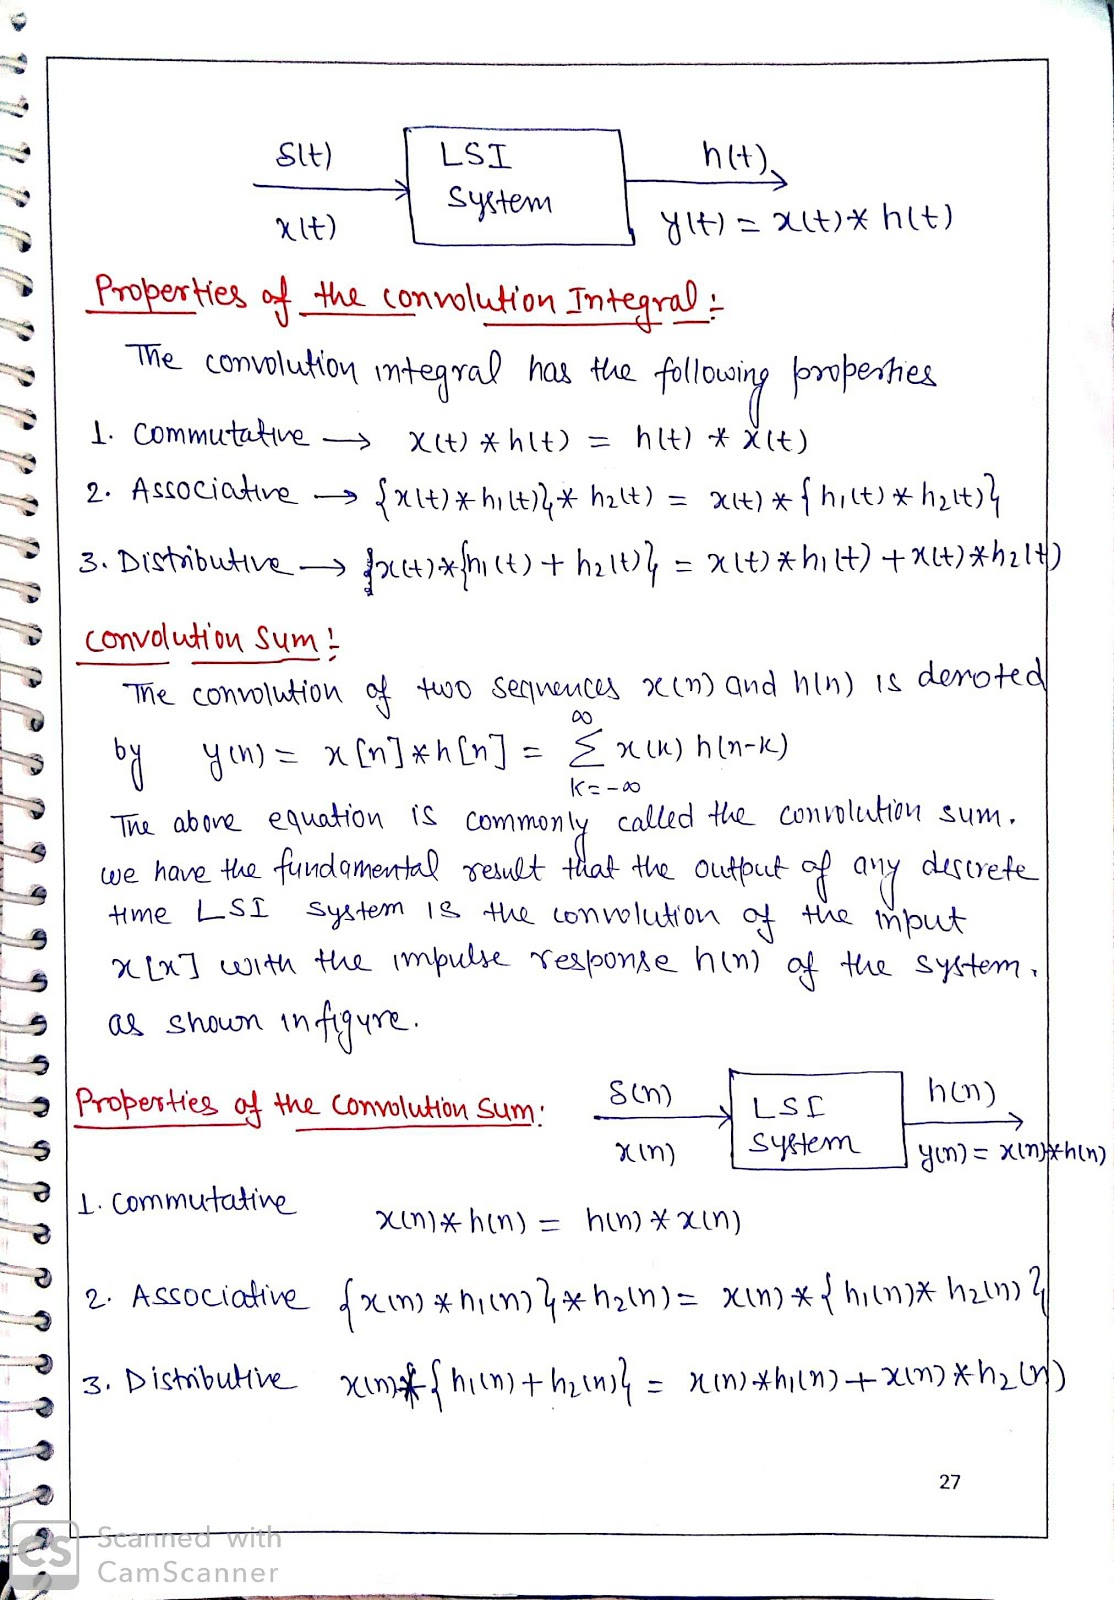 δ(t)
LSI
System
h(t)
x(t)
y(t) = x(t) * h(t)
Properties of the convolution Integral :-
The convolution integral has the following properties
1. Commutative → x(t) * h(t) = h(t) * x(t)
2. Associative → {x(t) * h₁(t)} * h₂(t) = x(t) * {h₁(t) * h₂(t)}
3. Distributive → x(t) * {h₁(t) + h₂(t)} = x(t) * h₁(t) + x(t) * h₂(t)
convolution sum :-
The convolution of two sequences x(n) and h(n) is denoted
by y(n) = x[n] * h[n] = ∞ Σ k=-∞ x(k) h(n-k)
The above equation is commonly called the convolution sum.
we have the fundamental result that the output of any descrete
time LSI system is the convolution of the input
x[x] with the impulse response h(n) of the system.
as shown in figure.
Properties of the Convolution Sum:
δ(n)
LSI
System
h(n)
x(n)
y(n) = x(n) * h(n)
1. Commutative
x(n) * h(n) = h(n) * x(n)
2. Associative {x(n) * h₁(n)} * h₂(n) = x(n) * {h₁(n) * h₂(n)}
3. Distributive x(n) * {h₁(n) + h₂(n)} = x(n) * h₁(n) + x(n) * h₂(n)
27
CS Scanned with
CamScanner